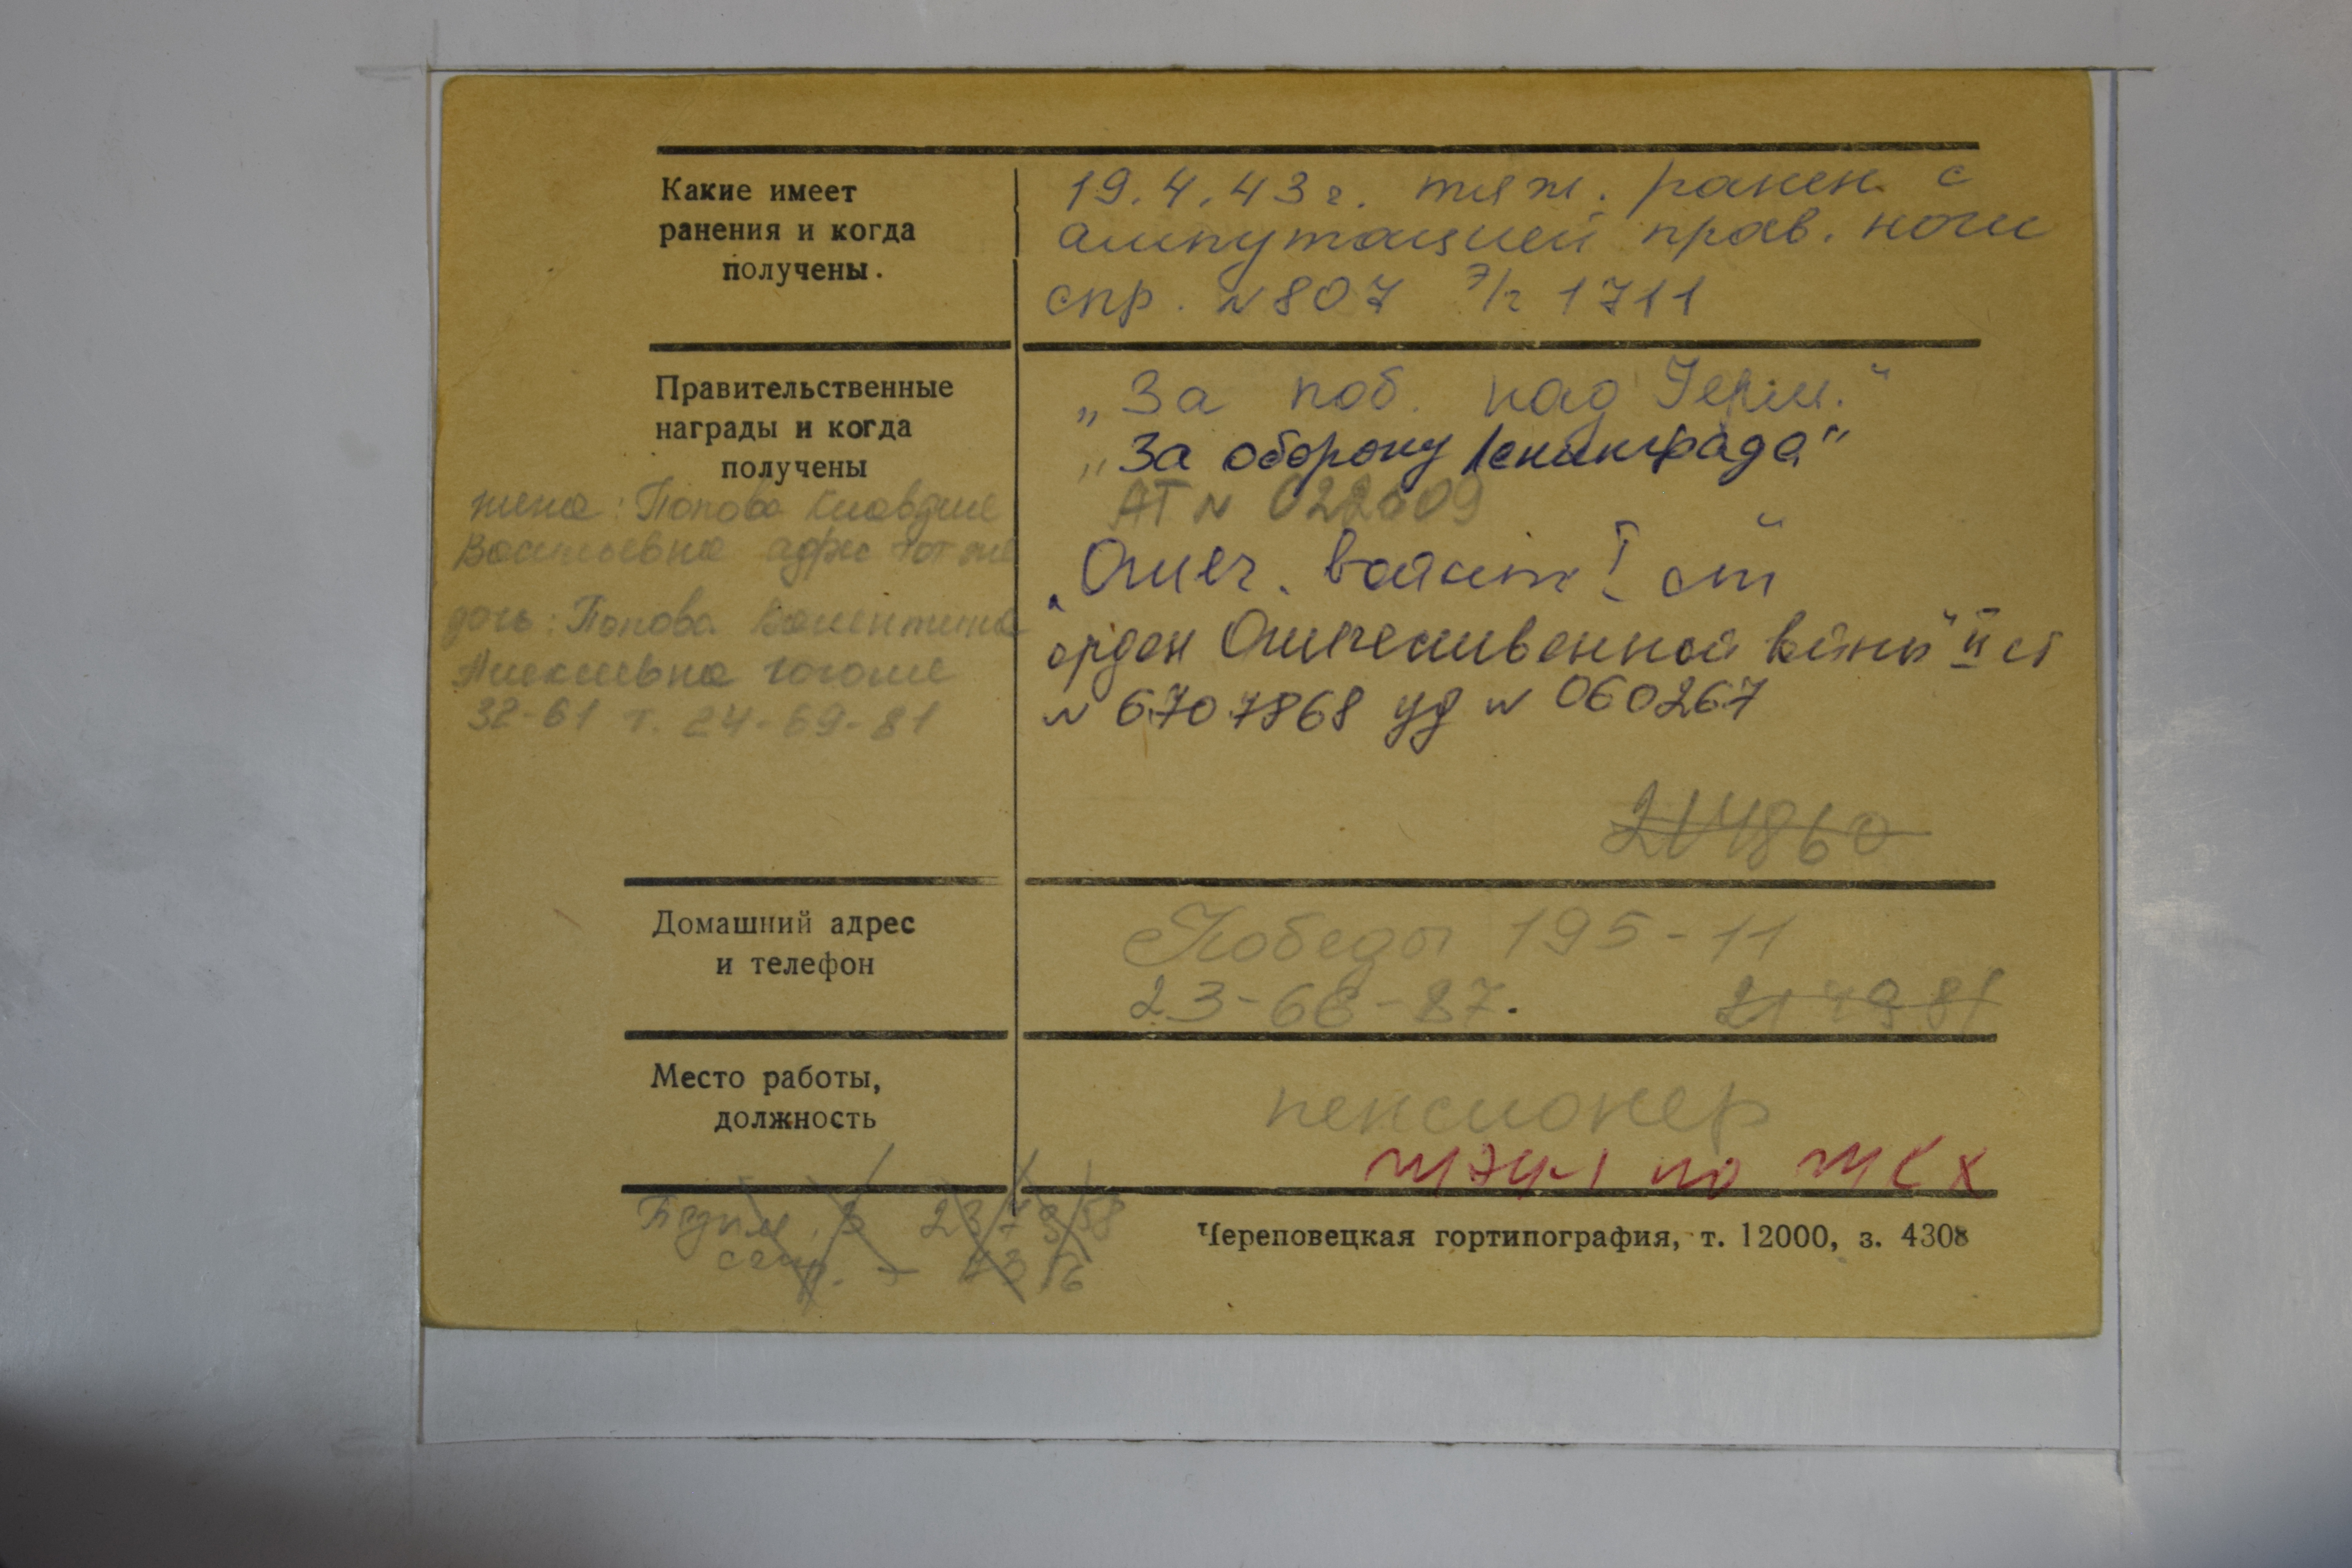 Какие имеет
ранения и когда
получены.
19.4.43г. тяж. ранен с
ампутацией прав. ноги
спр. N807 э/г 1711
Правительственные
награды и когда
получены
„За поб. над Герм."
„За оборону Ленинграда"
АТ N 022609
„Отеч. войны" I ст
орден Отечественной войны" II ст
N 6707868 уд N 060267
жена: Попова Клавдия
Васильевна адрес тот же
дочь: Попова Валентина
Алексеевна Гоголя
32-61 т. 24-69-81
214860
Домашний адрес
и телефон
Победы 195-11
23-66-87. 217981
Место работы,
должность
пенсионер
ЖЭУ-1 по ЖКХ
Череповецкая гортипография, т. 12000, з. 4308